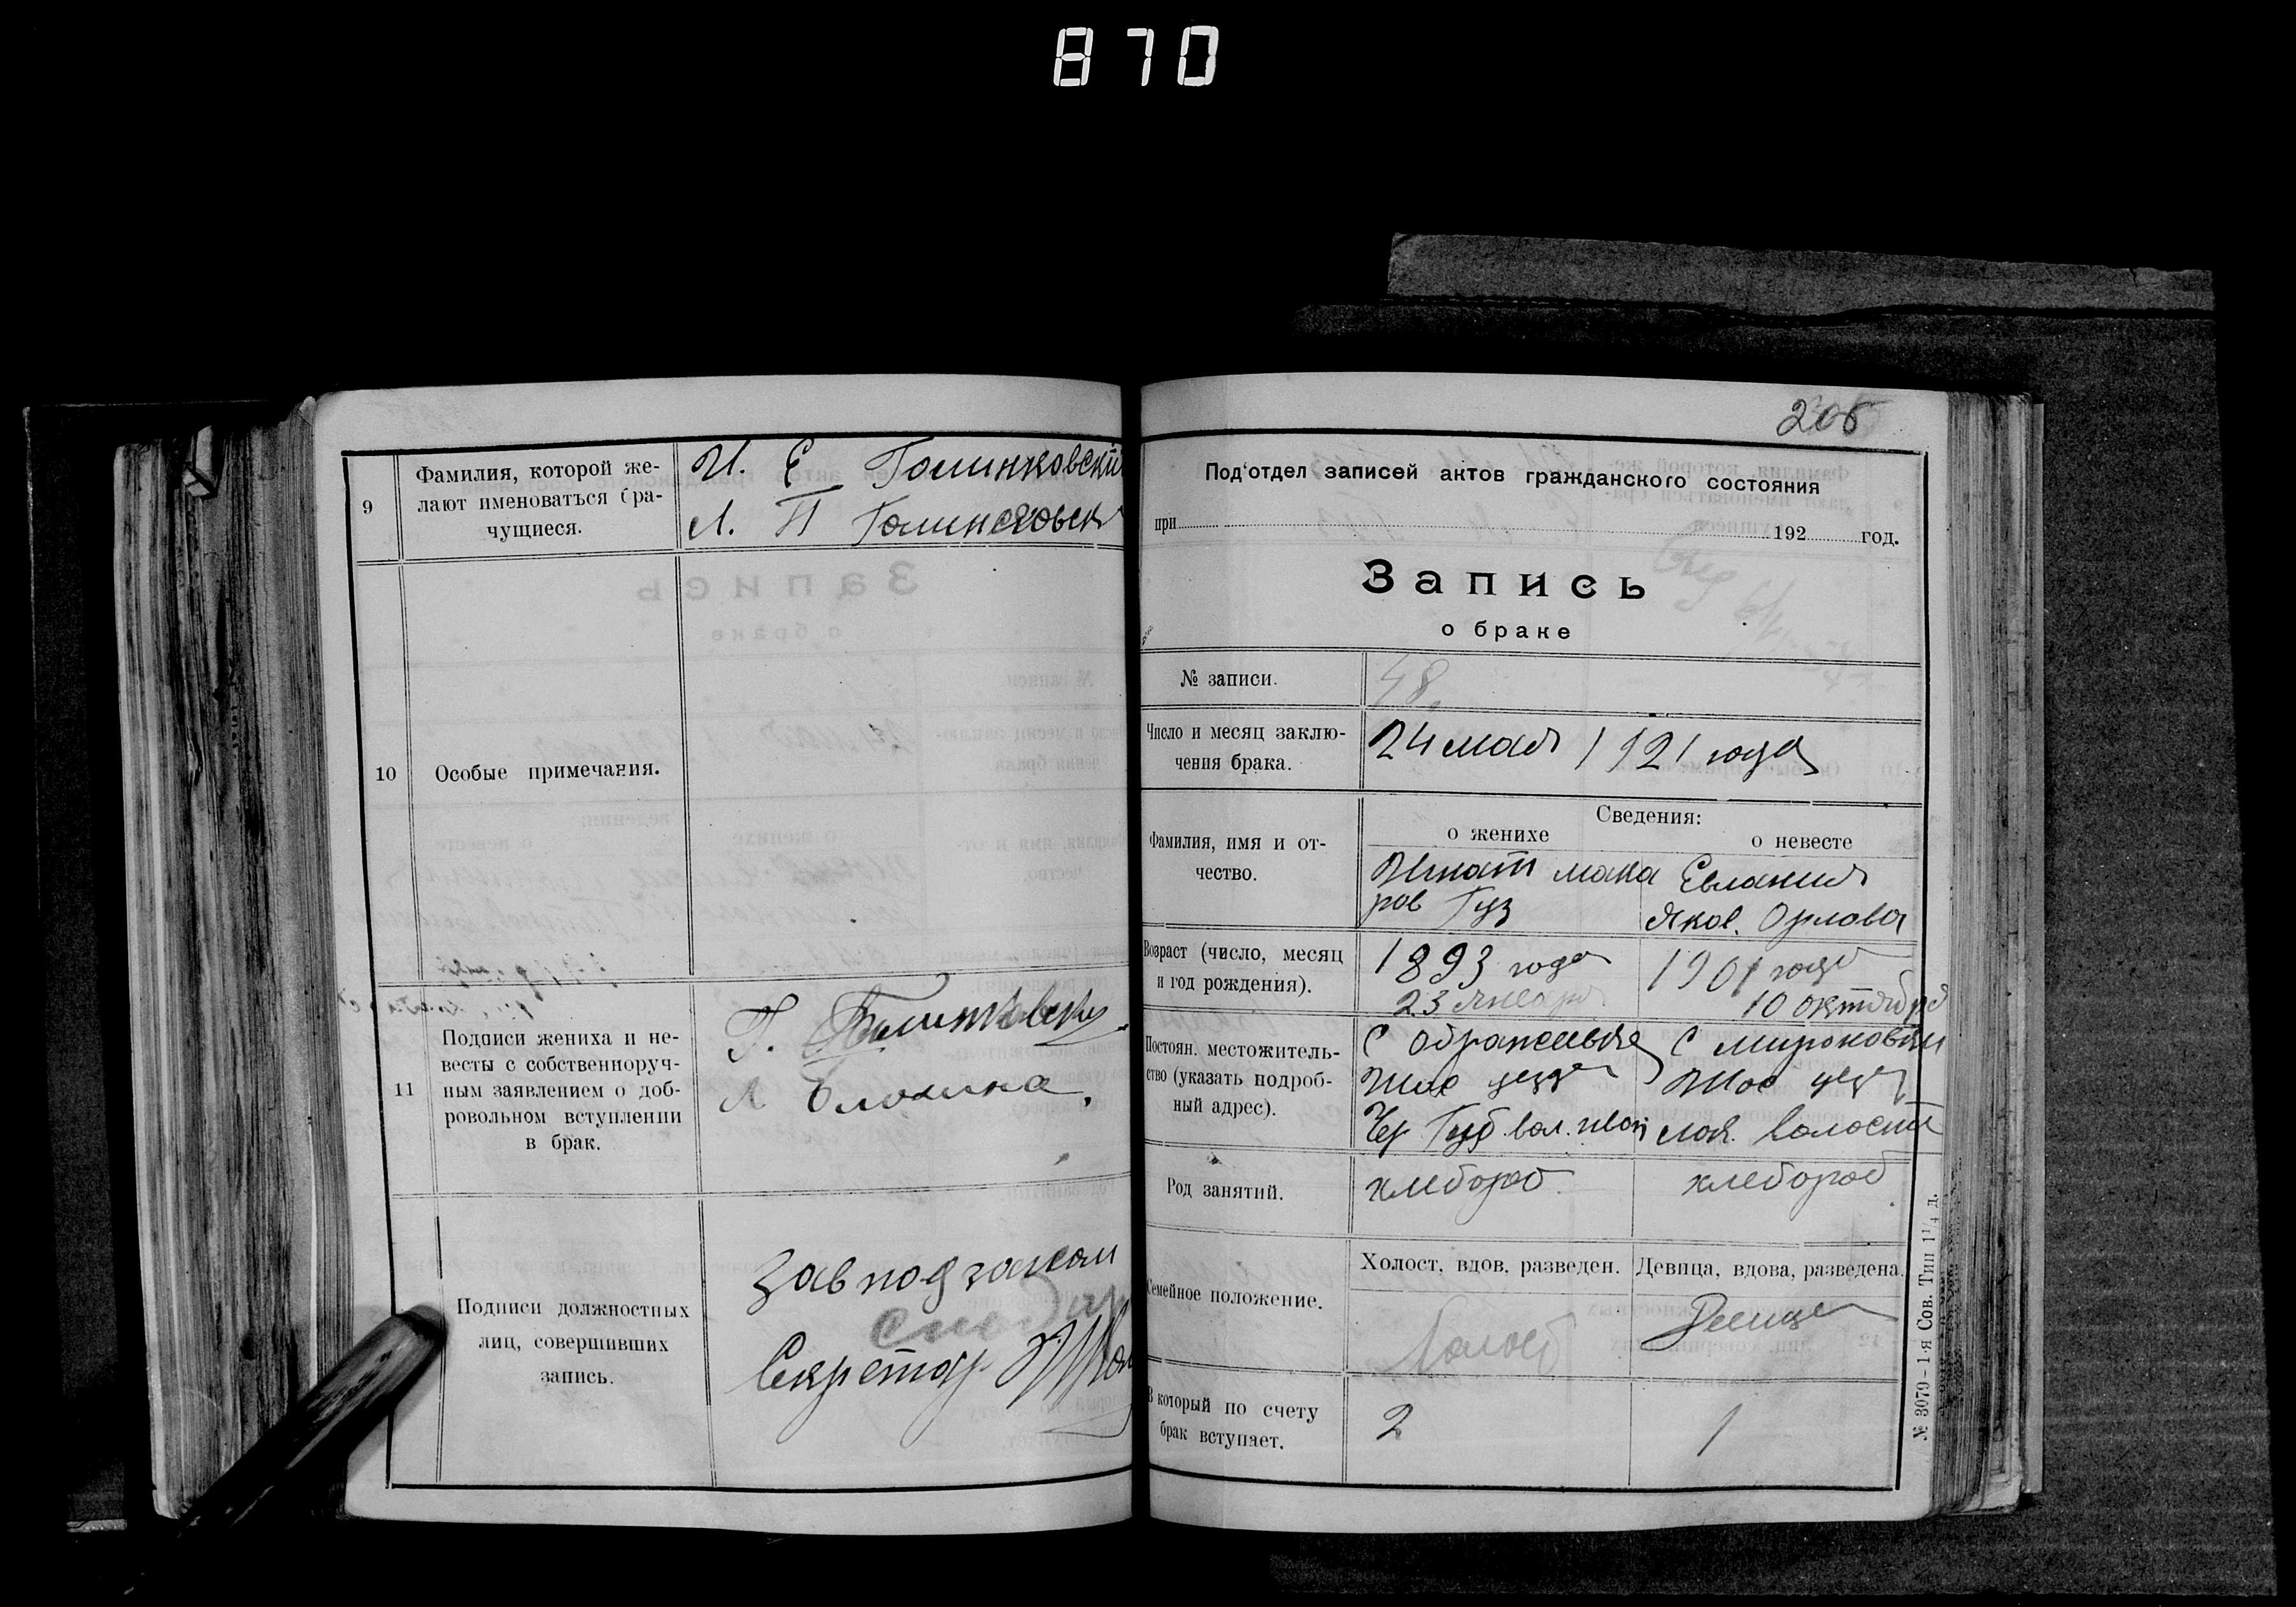 870
9
Фамилия, которой же-
лают именоваться бра-
чущиеся.
И. Е Голинковский
Л. П
10
Особые примечания.
11
Подписи жениха и не-
весты с собственноруч-
ным заявлением о доб-
ровольном вступлении
в брак.
Г.
Л Блохина.
Подписи должностных
лиц, совершивших
запись.
Зав подзагсом
Секретар
206
Под'отдел записей актов гражданского состояния
при 192 год.
Запись
о браке
№ записи.
48.
Число и месяц заклю-
чения брака.
24 мая 1921 года
Сведения:
о женихе
о невесте
Фамилия, имя и от-
чество.
Игнат мака
ров Гуз
Евлания
Яков. Орлова
Возраст (число, месяц
и год рождения).
1893 года
23 января
1901 года
10 октября
Постоян. местожитель-
ство (указать подроб-
ный адрес).
С
уезда
Губ. вол.
С мироновки
уезд
волости
Род занятий.
хлебороб
хлебороб
Семейное положение.
Холост, вдов, разведен.
Девица, вдова, разведена.
Холост
Девица
В который по счету
брак вступает.
2
1
№ 3079–1-я Сов. Тип 1¼ д.